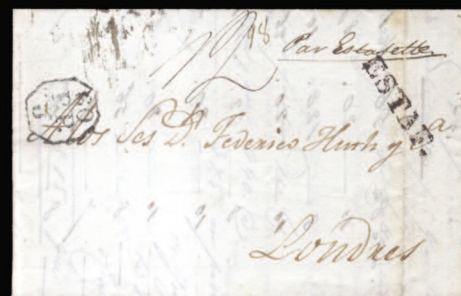 18
Par Estafette
ESTAF.
A los Ses Dn. Federico Huth y a
" " " "
Londres